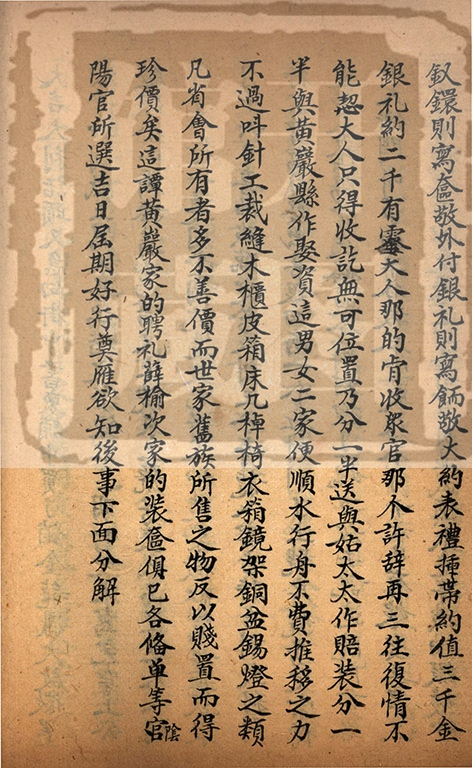 釵鐶則寫奩敬外付銀礼則寫餙敬大約表禮揷帶約值三千金
銀礼約二千有零大人那的肯收眾官那个許辞再三往復情不
能恝大人只得收訖無可位置乃分一半送與姑太太作賠装分一
半與黃巖縣作娶資這男女二家便順水行舟不費推移之力
不過呌針工裁縫木櫃皮箱床几棹椅衣箱鏡架銅盆錫燈之類
凡省會所有者多不善價而世家舊族所售之物反以賤置而得
珍價矣這譚黃巖家的聘礼薛榆次家的装奩俱已各俻单等官陰
陽官所選吉日届期好行奠雁欲知後事下面分解